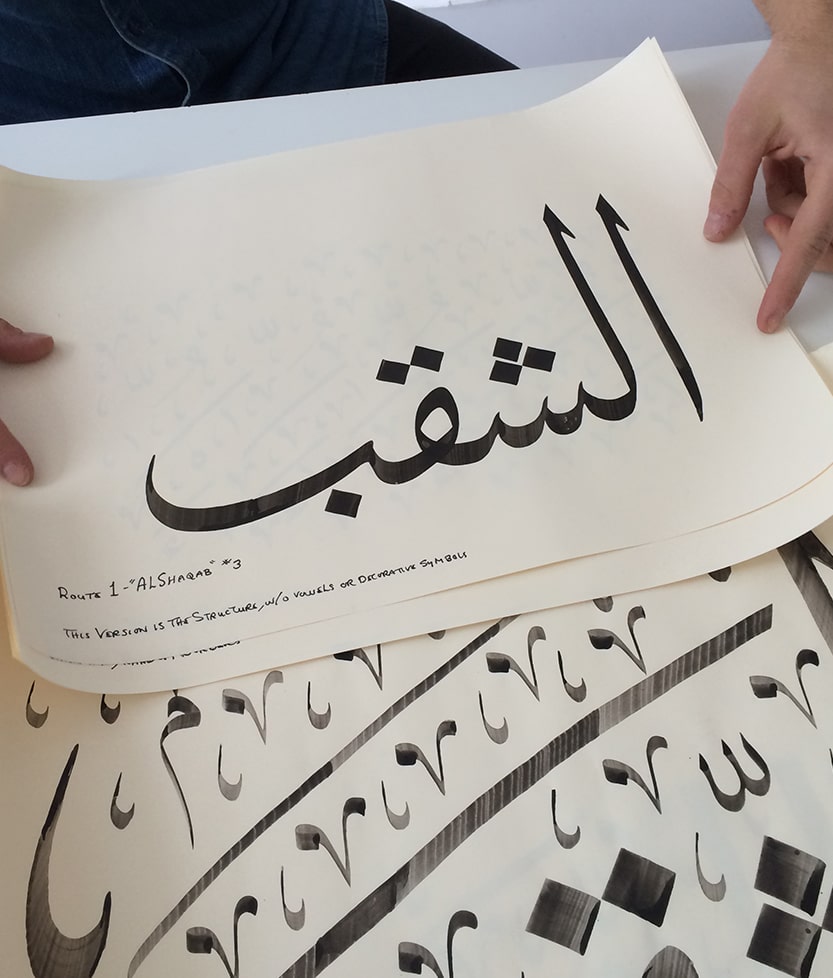 الشقب
ROUTE 1-"ALSHAQAB" #3
THIS VERSION IS THE STRUCTURE, W/O VOWELS OR DECORATIVE SYMBOLS